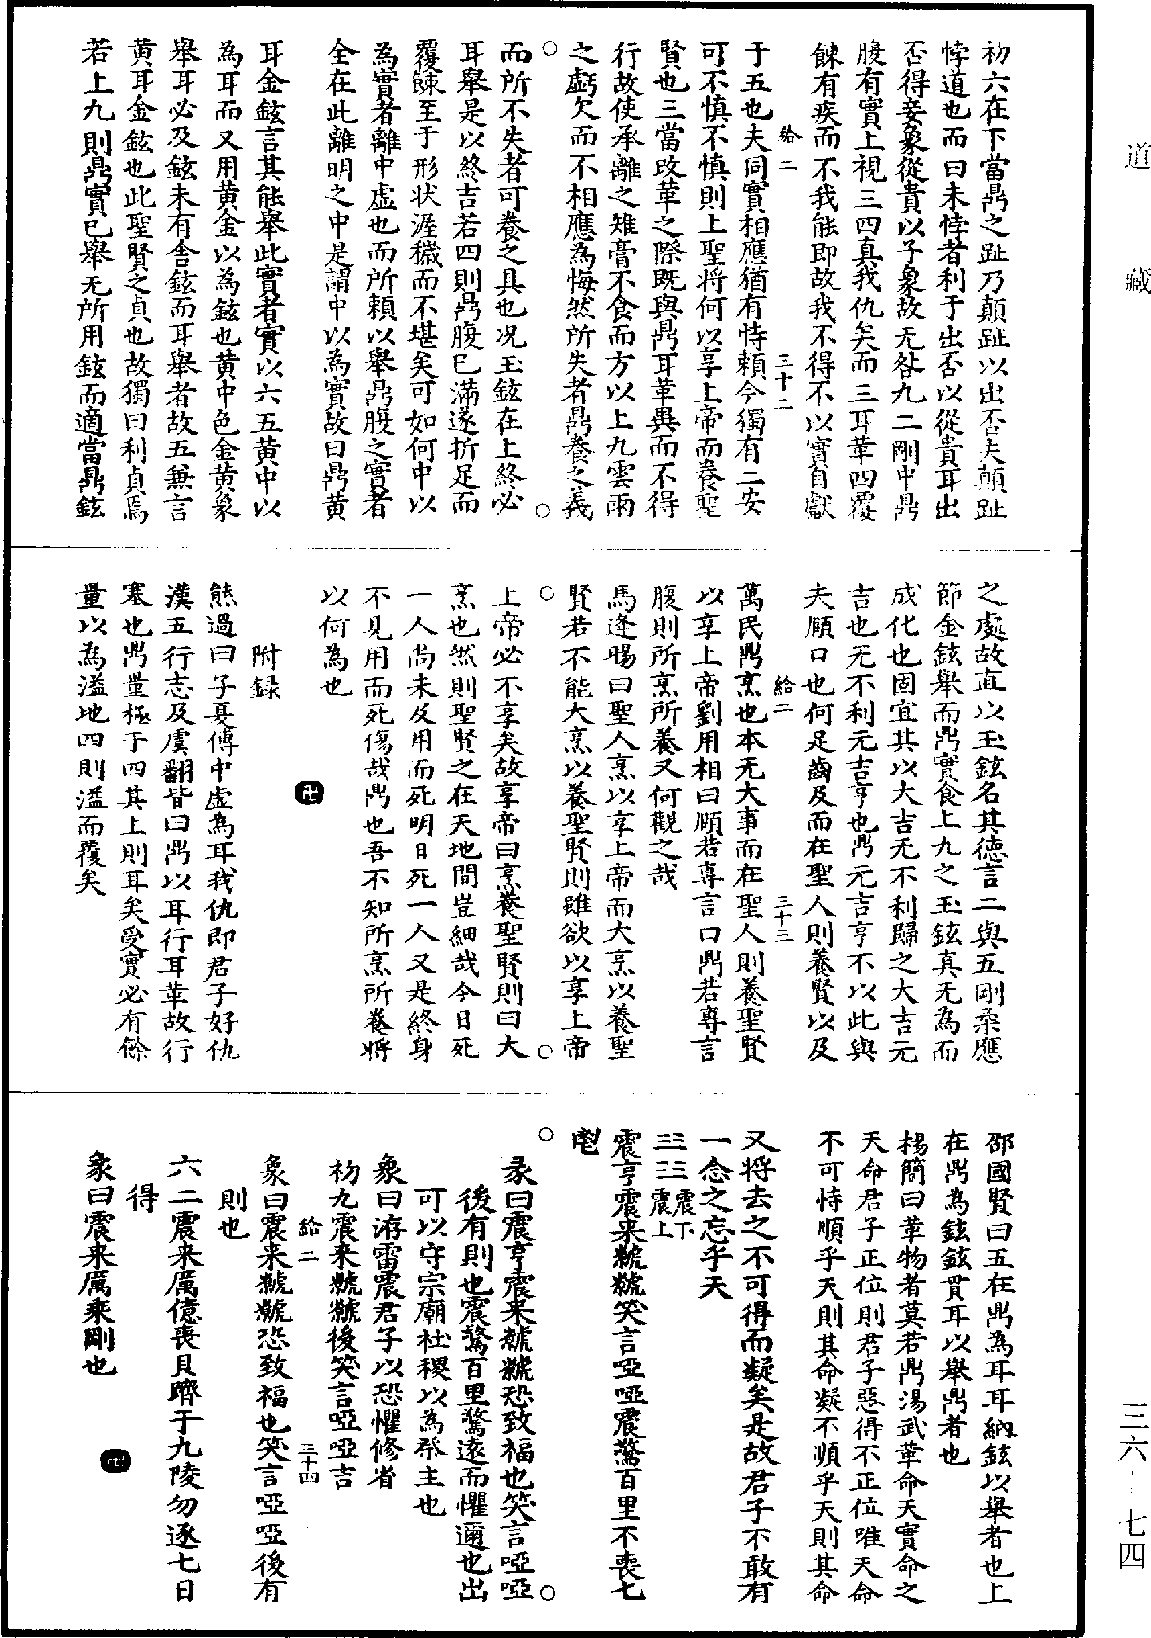 道藏
初六在下當鼎之趾乃顛趾以出否夫顛趾
悖道也而曰未悖者利于出否以從貴耳出
否得妾象從貴以子象故无咎九二剛中鼎
腹有實上視三四真我仇矣而三耳革四覆
餗有疾而不我能即故我不得不以實自獻
給二
三十二
于五也夫同實相應猶有恃賴今獨有二安
可不慎不慎則上聖將何以享上帝而養聖
賢也三當改革之際既與鼎耳革異而不得
行故使承離之雉膏不食而方以上九雲雨
之虧欠而不相應為悔然所失者鼎養之義
而所不失者可養之具也况玉鉉在上終必
耳舉是以終吉若四則鼎腹已滿遂折足而
覆餗至于形状渥穢而不堪矣可如何中以
為實者離中虛也而所賴以舉鼎腹之實者
全在此離明之中是謂中以為實故曰鼎黄
耳金鉉言其能舉此實者實以六五黄中以
為耳而又用黄金以為鉉也黄中色金黄象
舉耳必及鉉未有舍鉉而耳舉者故五兼言
黄耳金鉉也此聖賢之貞也故獨曰利貞焉
若上九則鼎實已舉无所用鉉而適當鼎鉉
之處故直以玉鉉名其德言二與五剛柔應
節金鉉舉而鼎實食上九之玉鉉真无為而
成化也固宜其以大吉无不利歸之大吉元
吉也无不利元吉亨也鼎元吉亨不以此與
夫頤口也何足齒及而在聖人則養賢以及
給二
三十三
萬民鼎烹也本无大事而在聖人則養聖賢
以享上帝劉用相曰頤若專言口鼎若專言
腹則所烹所養又何觀之哉
馬逢暘曰聖人烹以享上帝而大烹以養聖
賢若不能大烹以養聖賢則雖欲以享上帝
上帝必不享矣故享帝曰烹養聖賢則曰大
烹也然則聖賢之在天地間豈細哉今日死
一人尚未及用而死明日死一人又是終身
不見用而死傷哉鼎也吾不知所烹所養將
以何為也
附録
熊過曰子夏傳中虛為耳我仇即君子好仇
漢五行志及虞翻皆曰鼎以耳行耳革故行
塞也鼎量極于四其上則耳矣受實必有餘
量以為溢地四則溢而覆矣
邵國賢曰五在鼎為耳耳納鉉以舉者也上
在鼎為鉉鉉貫耳以舉鼎者也
楊簡曰革物者莫若鼎湯武革命天實命之
天命君子正位則君子惡得不正位唯天命
不可恃順乎天則其命凝不順乎天則其命
又將去之不可得而凝矣是故君子不敢有
一念之忘乎天
☳☳震下震上
震亨震来虩虩笑言啞啞震驚百里不喪匕
鬯
彖曰震亨震来虩虩恐致福也笑言啞啞
後有則也震驚百里驚遠而懼邇也出
可以守宗廟社稷以為祭主也
象曰洊雷震君子以恐懼修省
初九震来虩虩後笑言啞啞吉
給二
三十四
象曰震来虩虩恐致福也笑言啞啞後有
則也
六二震来厲億喪貝躋于九陵勿逐七日
得
象曰震来厲乘剛也
三六—七四